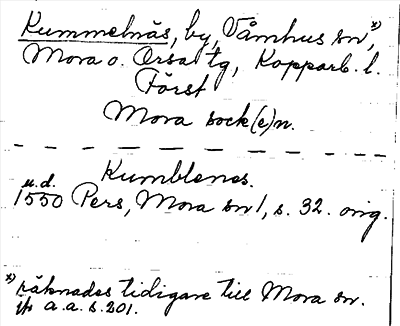 Kummelnäs, by, Våmhus sn, x)
Mora o. Orsa tg, Kopparb. l.
Först
Mora sock(e)n.
Kumblenes.
u.d.
1550 Pers, Mora sn 1, s. 32. orig.
x) räknades tidigare till Mora sn.
a.a. s. 201.